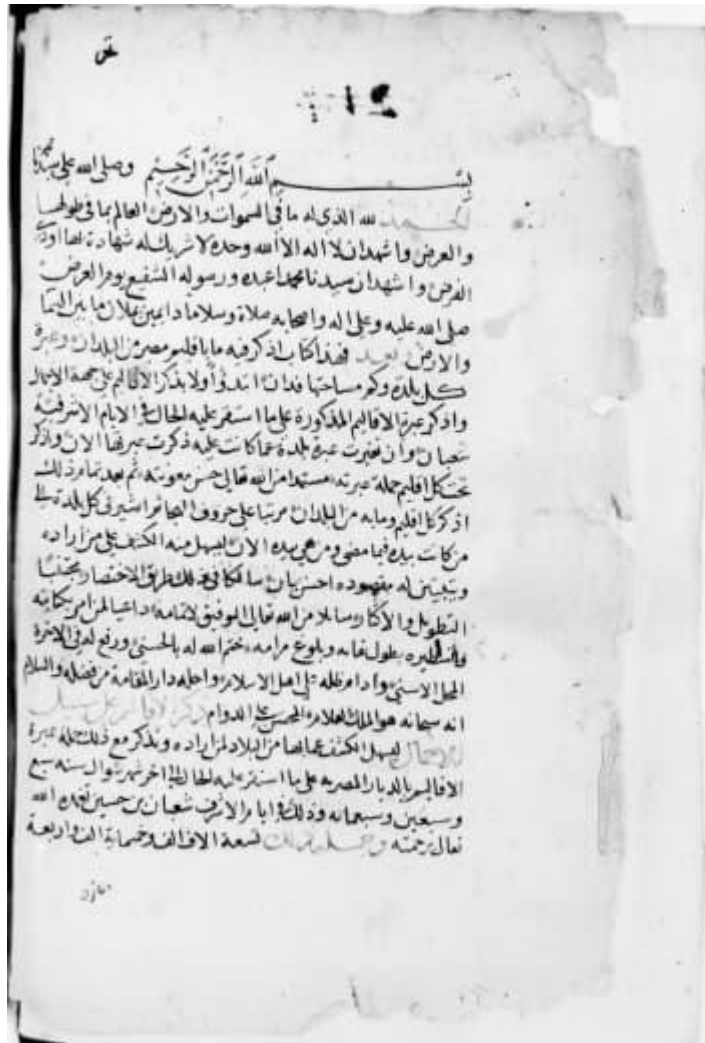 بسم الله الرحمن الرحيم وصلى الله على سيدنا
الحمد لله الذي له ما في السموات والارض العالم بما في طولها
والعرض واشهد ان لا اله الا الله وحده لا شريك له شهادة
الفرض واشهد ان سيدنا محمدا عبده ورسوله الشفيع يوم العرض
صلى الله عليه وعلى اله واصحابه صلاة وسلاما دايمين يملان ما بين السما
والارض وبعد فهذا كتاب اذكر فيه ما باقليم مصر من البلدان وعبرة
كل بلدة وكم مساحتها فدان ابتدئ اولا بذكر الاقاليم على جهة الاجمال
واذكر عبرة الاقاليم المذكورة على ما استقر عليه الحال في الايام الاشرفية
شعبان وان تغيرت عبرة بلدة عما كانت عليه ذكرت عبرتها الان واذكر
تحت كل اقليم جملة عبرته مستمدا من الله تعالى حسن معونته ثم بعد تمام ذلك
اذكر كل اقليم وما به من البلدان مرتبا على حروف الهجا ثم اشير في كل بلدة الى
من كانت بيده فيما مضى ومن هي بيده الان ليسهل منه الكشف على من اراده
ويتبين له مقصوده احسن بيان سالكا في ذلك طريق الاختصار مجتنبا
التطويل والاكثار سايلا من الله تعالى التوفيق لاتمامه داعيا لمن امر بكتابته
وتسطيره بطول بقايه وبلوغ مرامه ختم الله له بالحسنى ورفع له في الاخرة
المحل الاسنى وادام ظله على اهل الاسلام واحله دار المقامة من فضله والسلام
انه سبحانه هو الملك العلام المحسن على الدوام ذكر الاقاليم على سبيل
الاجمال ليسهل الكشف عما بها من البلاد لمن اراده ويذكر مع ذلك جملة عبرة
الاقاليم بالديار المصرية على ما استقر عليه الحال الى اخر شهر شوال سنه سبع
وسبعين وسبعمائه وذلك في ايام الاشرف شعبان بن حسين تغمده الله
تعالى برحمته وجملة ذلك تسعة الاف الف وخمسماية الف واربعة